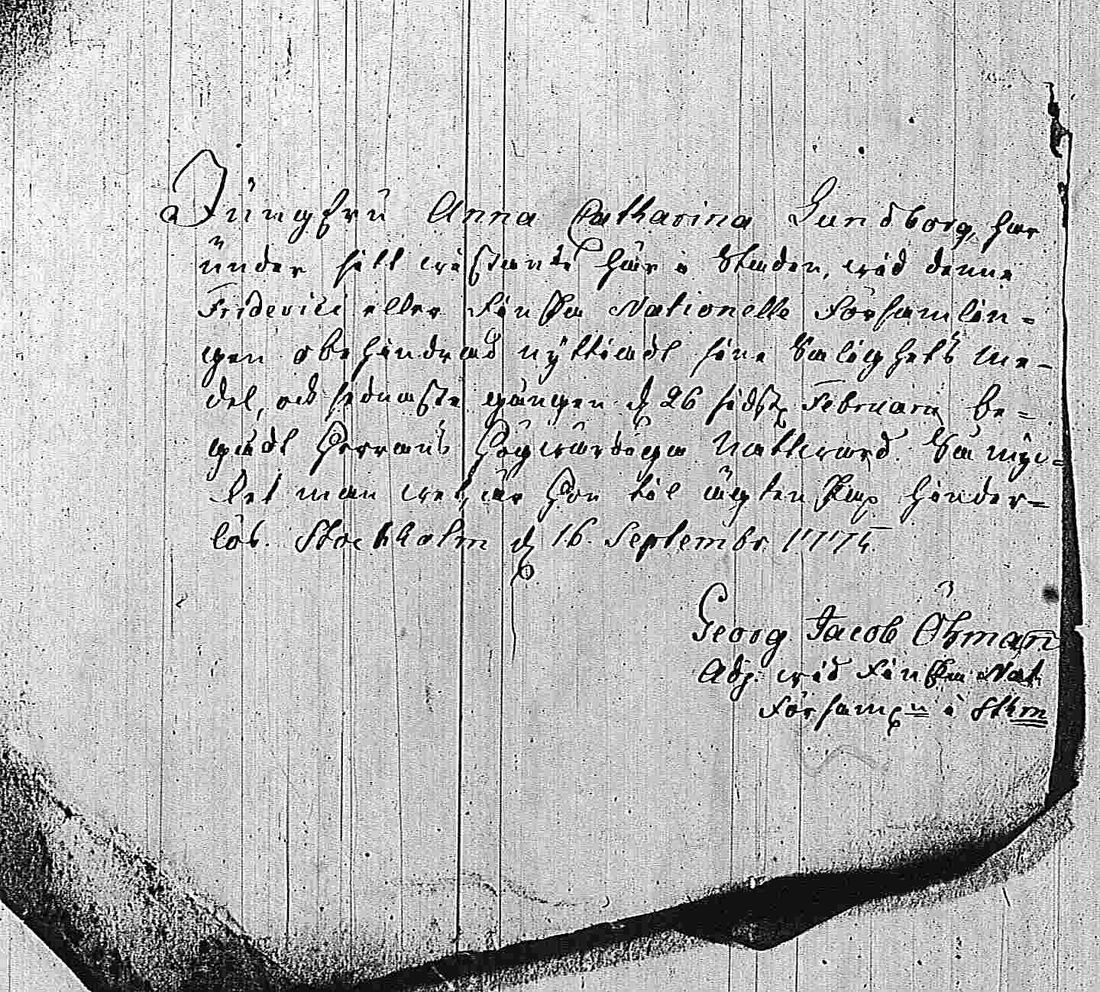 Jungfru Anna Catharina Lundborg, har
under sitt wistande här i Staden, wid denne
Friderici eller Finska Nationella Församlin-
gen obehindrad nyttiadt sine Salighets me-
del, och sednaste gången d 26 sidstl Februarii be-
gådt Herrans Högwärdiga Nattward. Så myc-
ket man wet, är hon til ägtenskap hinder-
lös. Stockholm d 16 Septembr 1775
Georg Jacob Öhman
Adj. wid Finska Nat.
Församl:n i Sthm